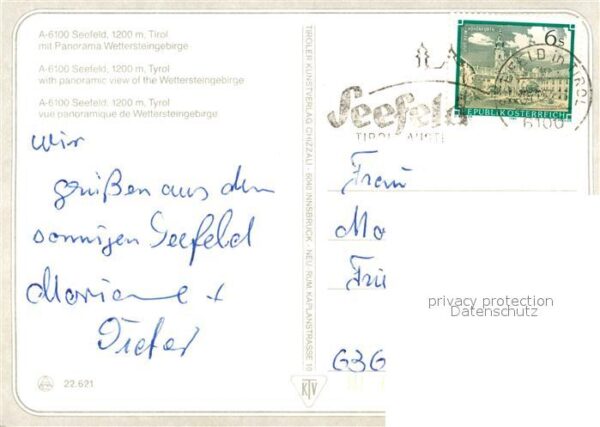 A-6100 Seefeld, 1200 m, Tirol
mit Panorama Wettersteingebirge
A-6100 Seefeld, 1200 m, Tyrol
with panoramic view of the Wettersteingebirge
A-6100 Seefeld, 1200 m, Tyrol
vue panoramique de Wettersteingebirge
wir
grüßen aus dem
sonnigen Seefeld
Marianne +
Dieter
22.621
TIROLER KUNSTVERLAG CHIZZALI · 6040 INNSBRUCK - NEU-RUM, KAPLANSTRASSE 10
KTV
6 S
REPUBLIK ÖSTERREICH
Seefeld
TIROL
SEEFELD in TIROL
6100
Frau
Ma
Fri
636
privacy protection
Datenschutz